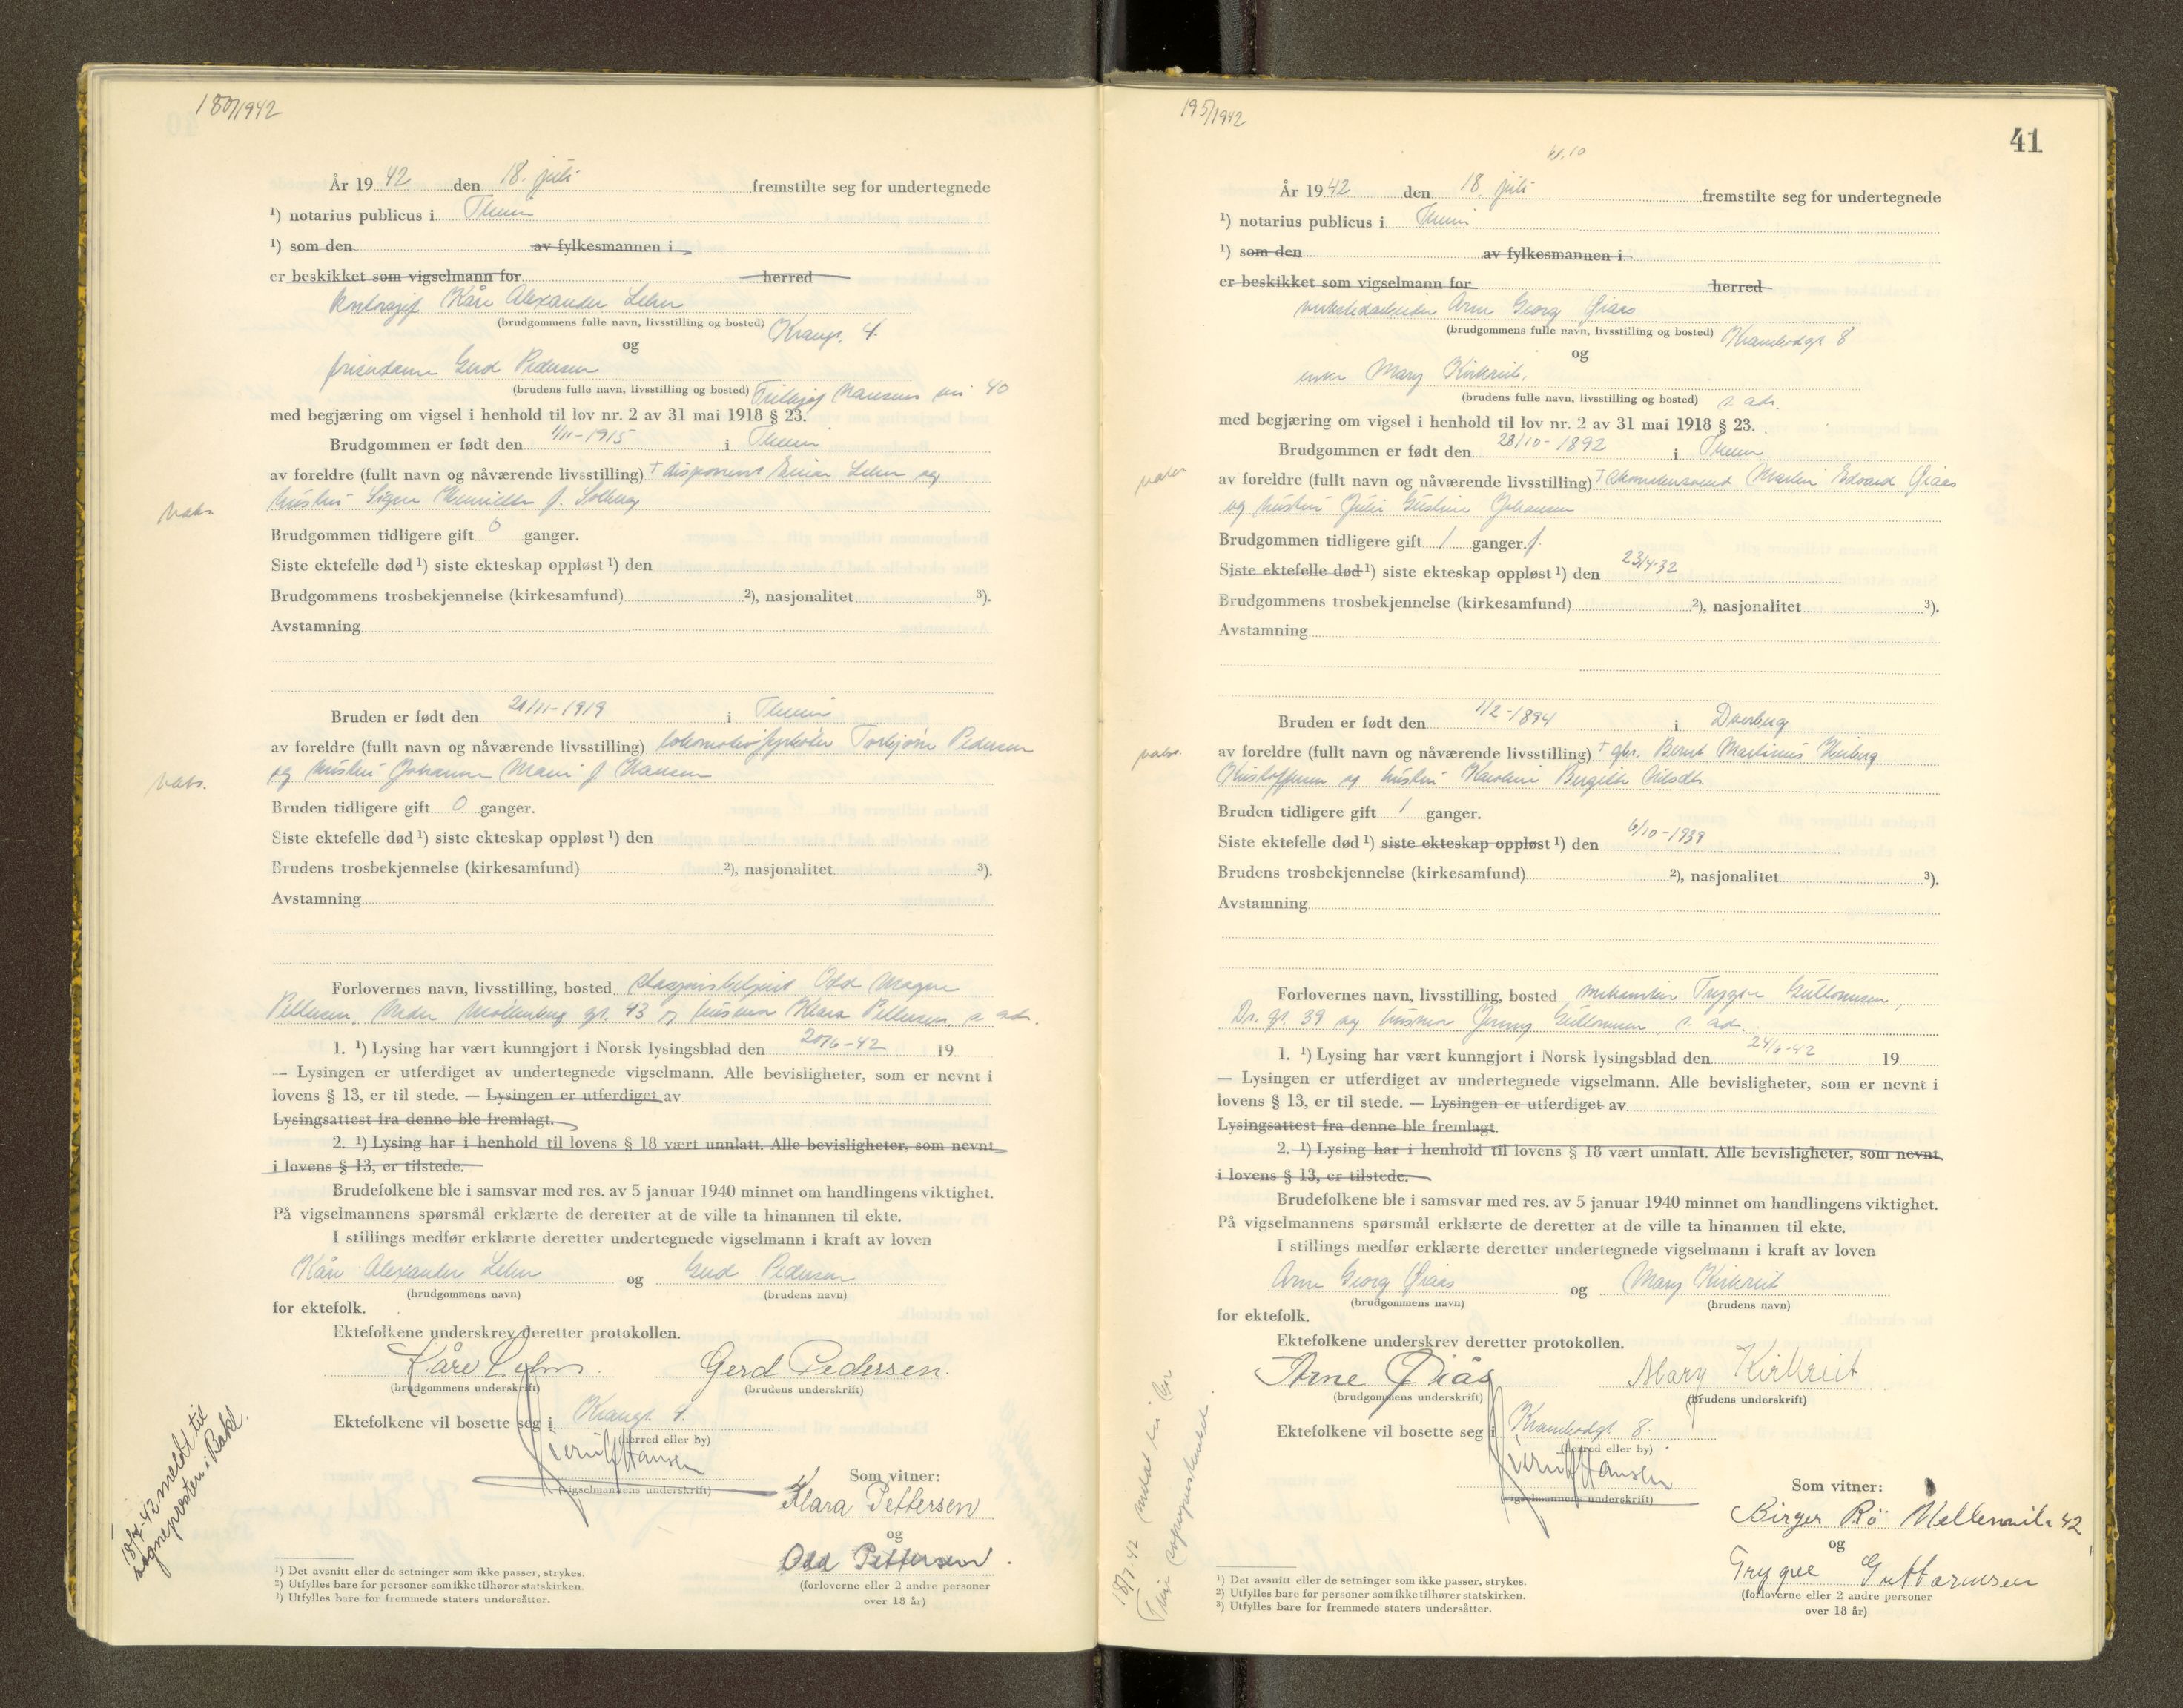 180/1942
År 19 42 den 18. juli fremstilte seg for undertegnede
¹) notarius publicus i Them
¹) som den av fylkesmannen i
er beskikket som vigselmann for herred
kontorsjef Kåre Alexander Lehn
(brudgommens fulle navn, livsstilling og bosted) Krangt. 4.
og
frisørdame Gerd Pedersen
(brudens fulle navn, livsstilling og bosted) Fridtjof Nansens vei 40
med begjæring om vigsel i henhold til lov nr. 2 av 31 mai 1918 § 23.
Brudgommen er født den 1/11-1915 i
av foreldre (fullt navn og nåværende livsstilling) † disponent Einar Lehn og
hustru Signe f. Solberg
vaks.
Brudgommen tidligere gift 0 ganger.
Siste ektefelle død ¹) siste ekteskap oppløst ¹) den
Brudgommens trosbekjennelse (kirkesamfund) ²), nasjonalitet ³).
Avstamning
Bruden er født den 21/11-1919 i
av foreldre (fullt navn og nåværende livsstilling) lokomotivfyrbøter Torbjørn Pedersen
og hustru Johanne Marie f. Hansen
vaks.
Bruden tidligere gift 0 ganger.
Siste ektefelle død ¹) siste ekteskap oppløst ¹) den
Brudens trosbekjennelse (kirkesamfund) ²), nasjonalitet ³).
Avstamning
Forlovernes navn, livsstilling, bosted stasjonsbetjent Odd Magne
Pettersen, Nedre Møllenberg gt. 43 og husmor Klara Pettersen, s. adr.
1. ¹) Lysing har vært kunngjort i Norsk lysingsblad den 20/6-42 19
— Lysingen er utferdiget av undertegnede vigselmann. Alle bevisligheter, som er nevnt i
lovens § 13, er til stede. — Lysingen er utferdiget av
Lysingsattest fra denne ble fremlagt.
2. ¹) Lysing har i henhold til lovens § 18 vært unnlatt. Alle bevisligheter, som nevnt
i lovens § 13, er tilstede.
Brudefolkene ble i samsvar med res. av 5 januar 1940 minnet om handlingens viktighet.
På vigselmannens spørsmål erklærte de deretter at de ville ta hinannen til ekte.
I stillings medfør erklærte deretter undertegnede vigselmann i kraft av loven
Kåre Alexander Lehn og Gerd Pedersen
(brudgommens navn) (brudens navn)
for ektefolk.
Ektefolkene underskrev deretter protokollen.
Kåre Lehn. Gerd Pedersen.
(brudgommens underskrift) (brudens underskrift)
Ektefolkene vil bosette seg i Krangt. 4.
(herred eller by)
Hansen
(vigselmannens underskrift)
Som vitner:
Klara Pettersen
og
Odd Pettersen.
(forloverne eller 2 andre personer
over 18 år)
18/7-42 meldt til
sogneprosten i Bakl.
¹) Det avsnitt eller de setninger som ikke passer, strykes.
²) Utfylles bare for personer som ikke tilhører statskirken.
³) Utfylles bare for fremmede staters undersåtter.
195/1942
41
kl. 10
År 19 42 den 18. juli fremstilte seg for undertegnede
¹) notarius publicus i
¹) som den av fylkesmannen i
er beskikket som vigselmann for herred
verkstedarbeider Arne Georg Øiaas
(brudgommens fulle navn, livsstilling og bosted) Krambodgt 8
og
enke Mary Kirkreit,
(brudens fulle navn, livsstilling og bosted) s. adr.
med begjæring om vigsel i henhold til lov nr. 2 av 31 mai 1918 § 23.
Brudgommen er født den 28/10-1892 i
av foreldre (fullt navn og nåværende livsstilling) † skomakersvend Martin Edvard Øiaas
og hustru Julie Gustine Johansen
vaks
Brudgommen tidligere gift 1 ganger.
Siste ektefelle død ¹) siste ekteskap oppløst ¹) den 23/4-32
Brudgommens trosbekjennelse (kirkesamfund) ²), nasjonalitet ³).
Avstamning
Bruden er født den 1/2-1894 i Dverberg
av foreldre (fullt navn og nåværende livsstilling) † gbr. Bernt Martinius
Kristoffersen og hustru Karoline Bergitte Nilsdtr.
vaks.
Bruden tidligere gift 1 ganger.
Siste ektefelle død ¹) siste ekteskap oppløst ¹) den 6/10-1939
Brudens trosbekjennelse (kirkesamfund) ²), nasjonalitet ³).
Avstamning
Forlovernes navn, livsstilling, bosted mekaniker Trygve Guttormsen,
Dr. gt. 39 og husmor Jenny Guttormsen, s. adr.
1. ¹) Lysing har vært kunngjort i Norsk lysingsblad den 24/6-42 19
— Lysingen er utferdiget av undertegnede vigselmann. Alle bevisligheter, som er nevnt i
lovens § 13, er til stede. — Lysingen er utferdiget av
Lysingsattest fra denne ble fremlagt.
2. ¹) Lysing har i henhold til lovens § 18 vært unnlatt. Alle bevisligheter, som nevnt
i lovens § 13, er tilstede.
Brudefolkene ble i samsvar med res. av 5 januar 1940 minnet om handlingens viktighet.
På vigselmannens spørsmål erklærte de deretter at de ville ta hinannen til ekte.
I stillings medfør erklærte deretter undertegnede vigselmann i kraft av loven
Arne Georg Øiaas og Mary Kirkreit
(brudgommens navn) (brudens navn)
for ektefolk.
Ektefolkene underskrev deretter protokollen.
Arne Øiås Mary Kirkreit
(brudgommens underskrift) (brudens underskrift)
Ektefolkene vil bosette seg i Krambodgt 8.
(herred eller by)
Hansen
(vigselmannens underskrift)
Som vitner:
Birger Rö Mellemila 42
og
Trygve Guttormsen
(forloverne eller 2 andre personer
over 18 år)
18/7-42 meldt
¹) Det avsnitt eller de setninger som ikke passer, strykes.
²) Utfylles bare for personer som ikke tilhører statskirken.
³) Utfylles bare for fremmede staters undersåtter.